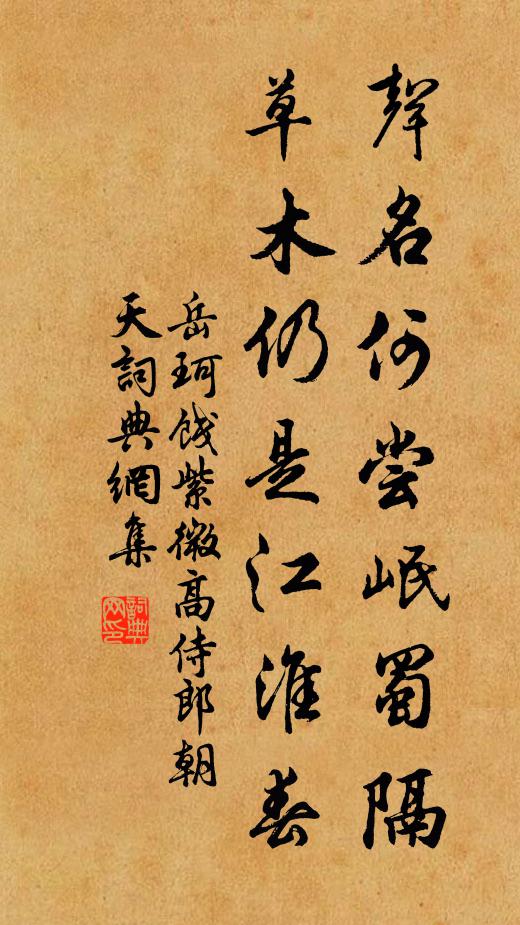 聲名何嘗岷蜀隔
草木仍是江淮春
岳珂餞紫微高侍郎朝
天詞典網集
詞典网印